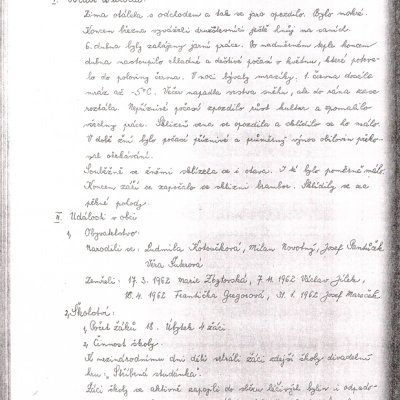 Zima otálela s odchodem a tak se jaro opozdilo. Bylo mokré.
Koncem března vyváželi družstevníci ještě hnůj na saních.
6. dubna byly zahájeny jarní práce. Po nádherném teple koncem
dubna nastoupilo chladné a deštivé počasí v květnu, které potrva-
lo do poloviny června. V noci bývaly mrazíky. 1. června docílil
mráz až -5°C. Večer napadla vrstva sněhu, ale do rána zase
roztála. Nepříznivé počasí opozdilo růst kultur a zpomalilo
všechny práce. Sklizeň sena se opozdila a sklidilo se ho málo.
V době žní bylo počasí příznivé a průměrný výnos obilovin překo-
nal očekávání.
Souběžně se žněmi sklízela se i otava. I té bylo poměrně málo.
Koncem září se započalo se sklizní brambor. Sklidily se za
pěkné pohody.
II. Události v obci
1, Obyvatelstvo:
Narodili se: Ludmila Kotoučková, Milan Novotný, Josef
Věra
Zemřeli: 17. 3. 1962 Marie 7. 11. 1962 Václav Jílek,
18. 4. 1962 Františka Gregorová, 31. 1. 1962 Josef Mareček.
2, Školství:
1, Počet žáků 18. Úbytek 4 žáci.
2, Činnost školy.
K mezinárodnímu dni dětí sehráli žáci zdejší školy divadelní
hru: „Stříbrná studánka".
Žáci školy se aktivně zapojili do sběru léčivých bylin i odpado-